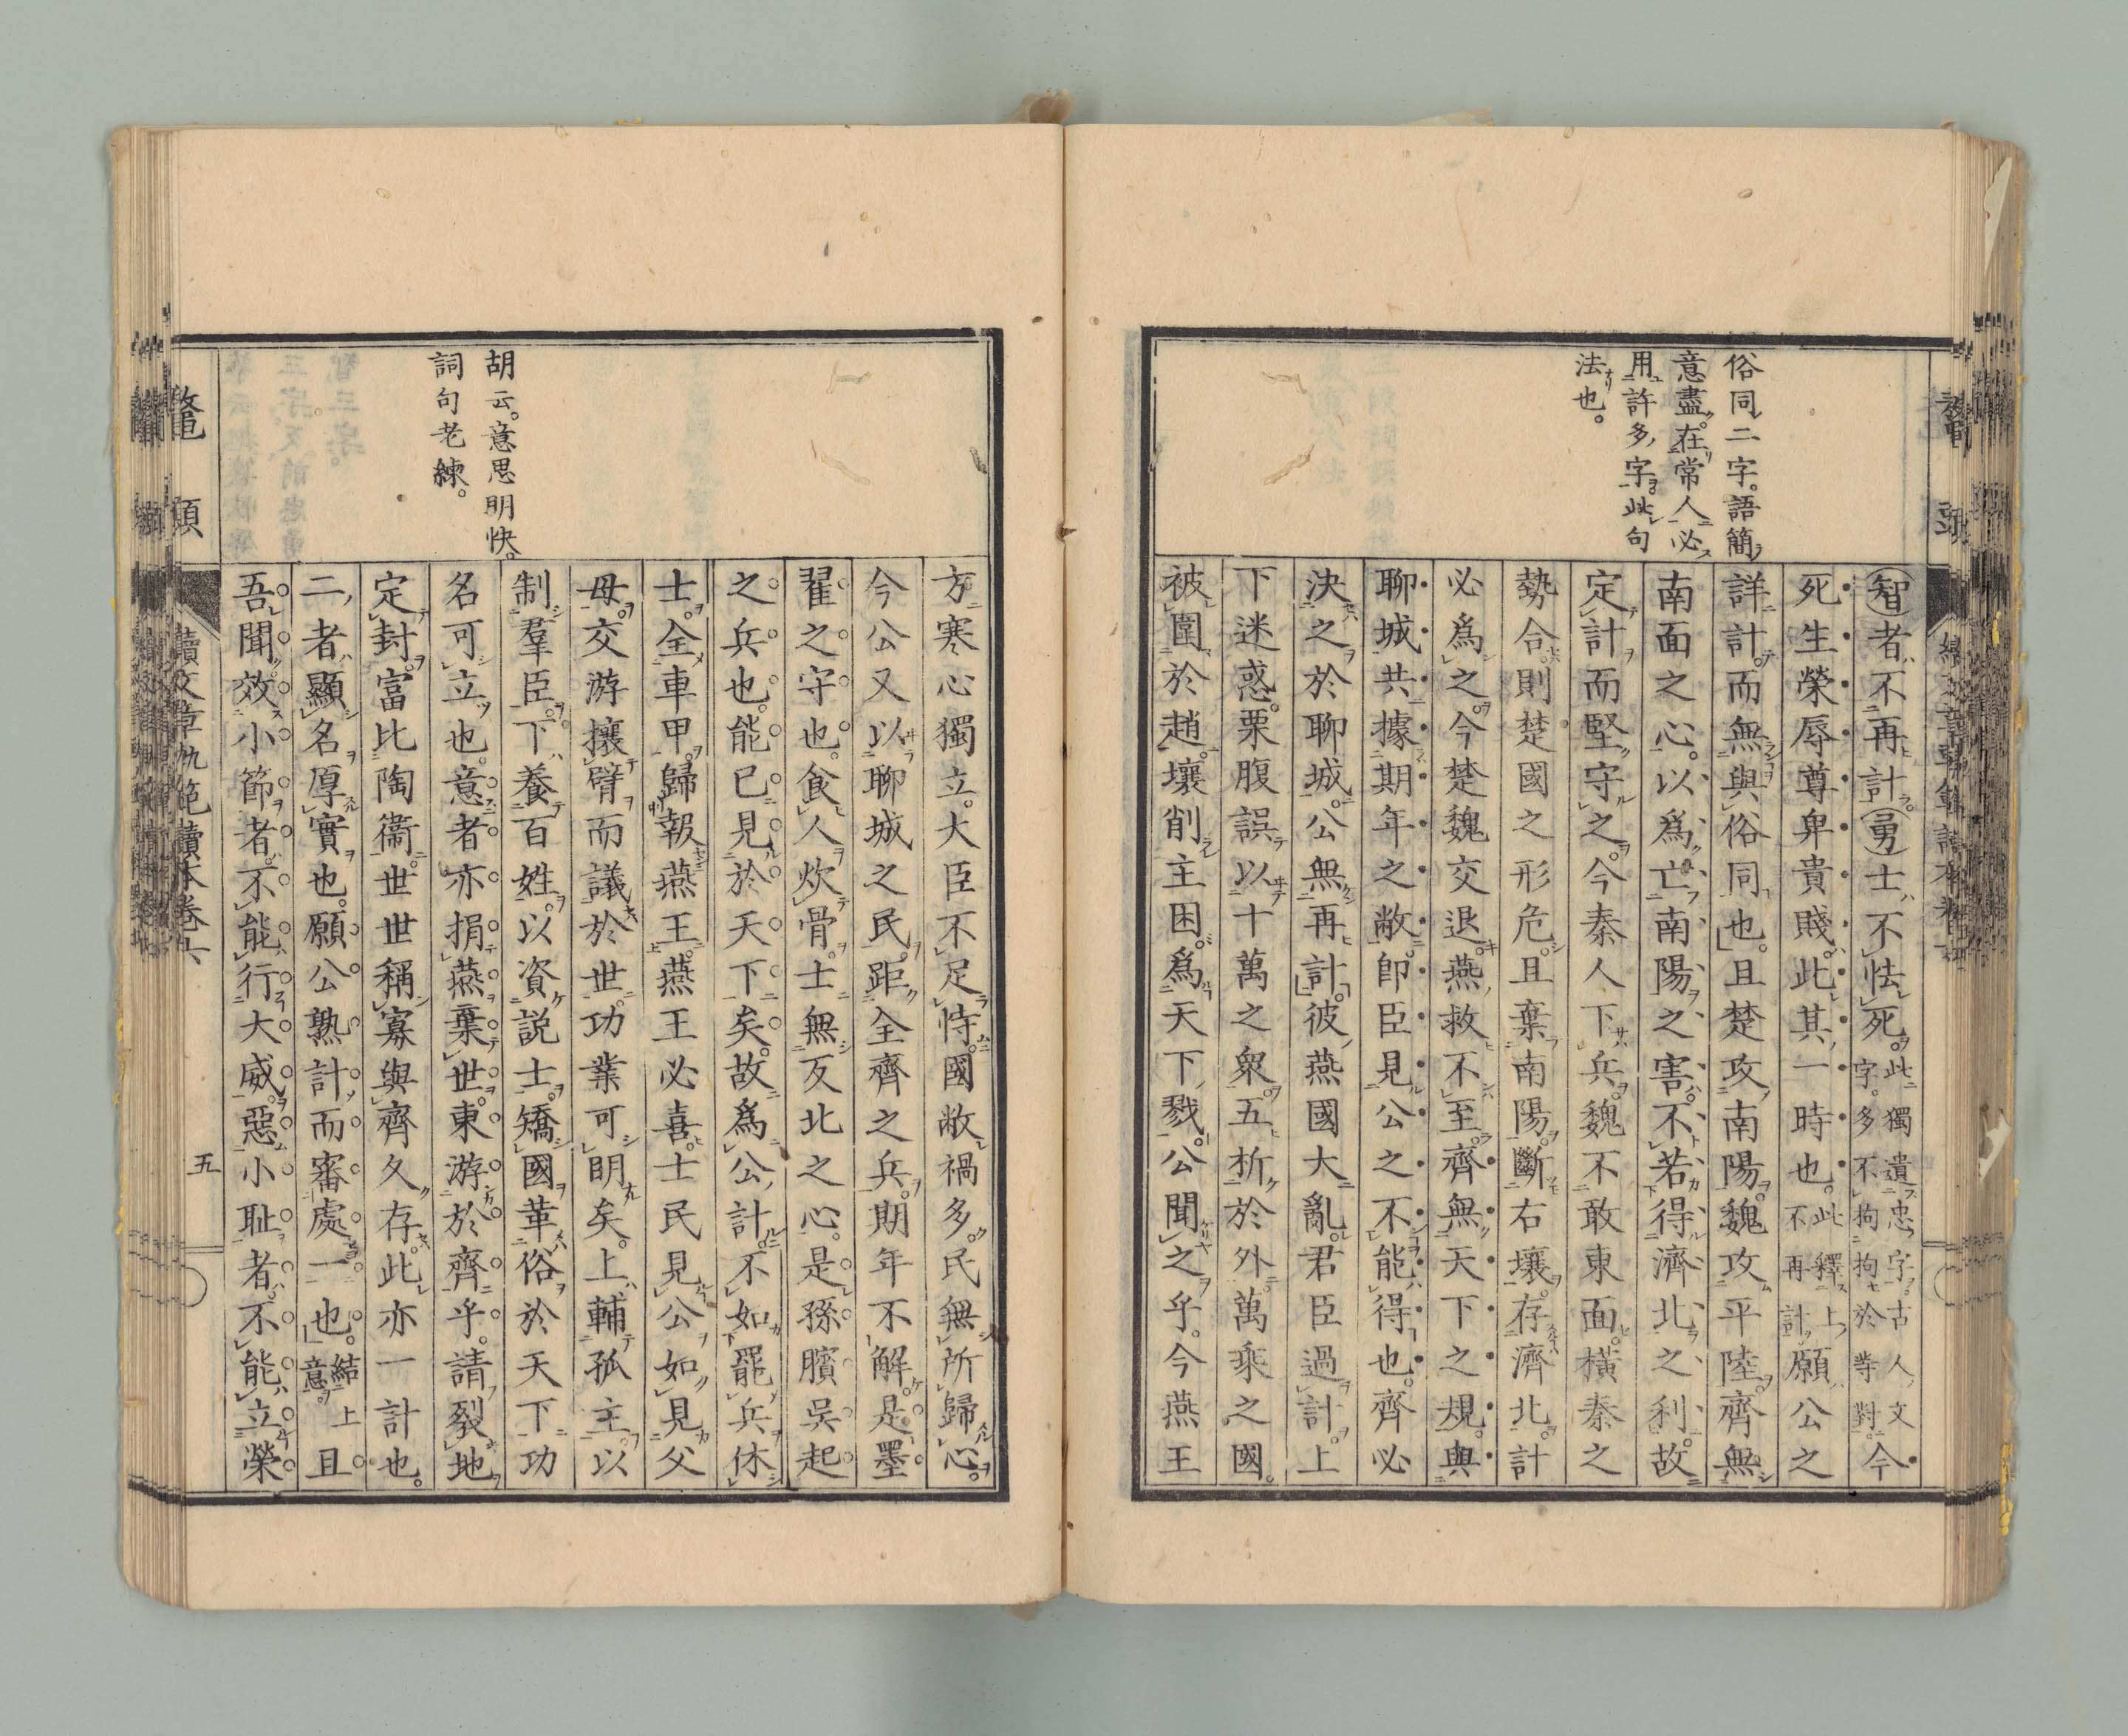 俗同二字。語簡
意盡。在常人必
用許多字。此句
法也。
智者不再計勇士不怯死。此獨遺忠字。古人文字。多不拘拘於等對。今
死生榮辱尊卑貴賤。此其一時也。此釋上不再計。願公之
詳計而無與俗同也。且楚攻南陽。魏攻平陸。齊無
南面之心。以爲亡南陽之害。不若得濟北之利。故
定計而堅守之。今秦人下兵。魏不敢東面。橫秦之
勢合。則楚國之形危。且棄南陽。斷右壤。存濟北。計
必爲之。今楚魏交退。燕救不至。齊無天下之規。與
聊城共據期年之敝。卽臣見公之不能得也。齊必
決之於聊城。公無再計。彼燕國大亂。君臣過計。上
下迷惑。栗腹誤以十萬之衆。五折於外。萬乘之國。
被圍於趙。壤削主困。爲天下戮。公聞之乎。今燕王
胡云。意思明快。
詞句老練。
方寒心獨立。大臣不足恃。國敝禍多。民無所歸心。
今公又以聊城之民。距全齊之兵。期年不解。是墨
翟之守也。食人炊骨。士無反北之心。是孫臏吳起
之兵也。能已見於天下矣。故爲公計。不如罷兵休
士。全車甲。歸報燕王。燕王必喜。士民見公。如見父
母。交游攘臂而議於世。功業可明矣。上輔孤主。以
制羣臣。下養百姓。以資說士。矯國革俗於天下。功
名可立也。意者亦捐燕棄世。東游於齊乎。請裂地
定封。富比陶衞。世世稱寡。與齊久存。此亦一計也。
二者顯名厚實也。願公熟計而審處一也。結上意。且
吾聞效小節者。不能行大威。惡小恥者。不能立榮
鼇頭
續文章軌範讀本卷六
五